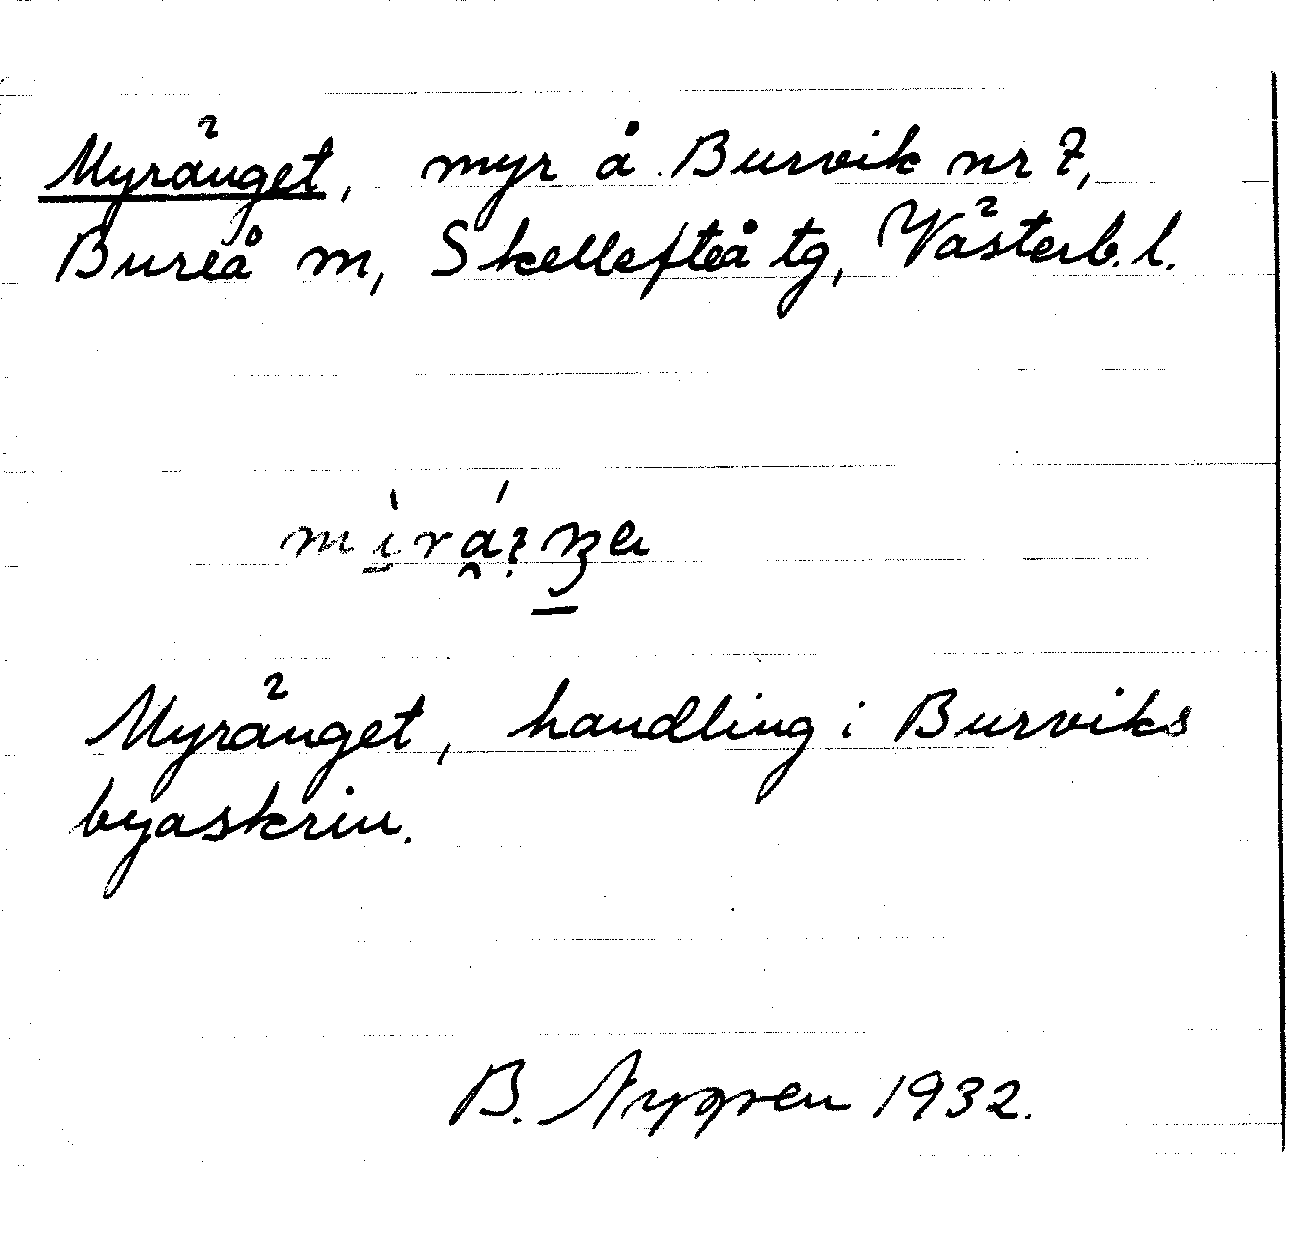 Myränget, myr å Burvik nr 7,
Bureå m, Skellefteå tg, Västerb. l.
Myränget, handling i Burviks
byaskrin.
B. Nygren 1932.